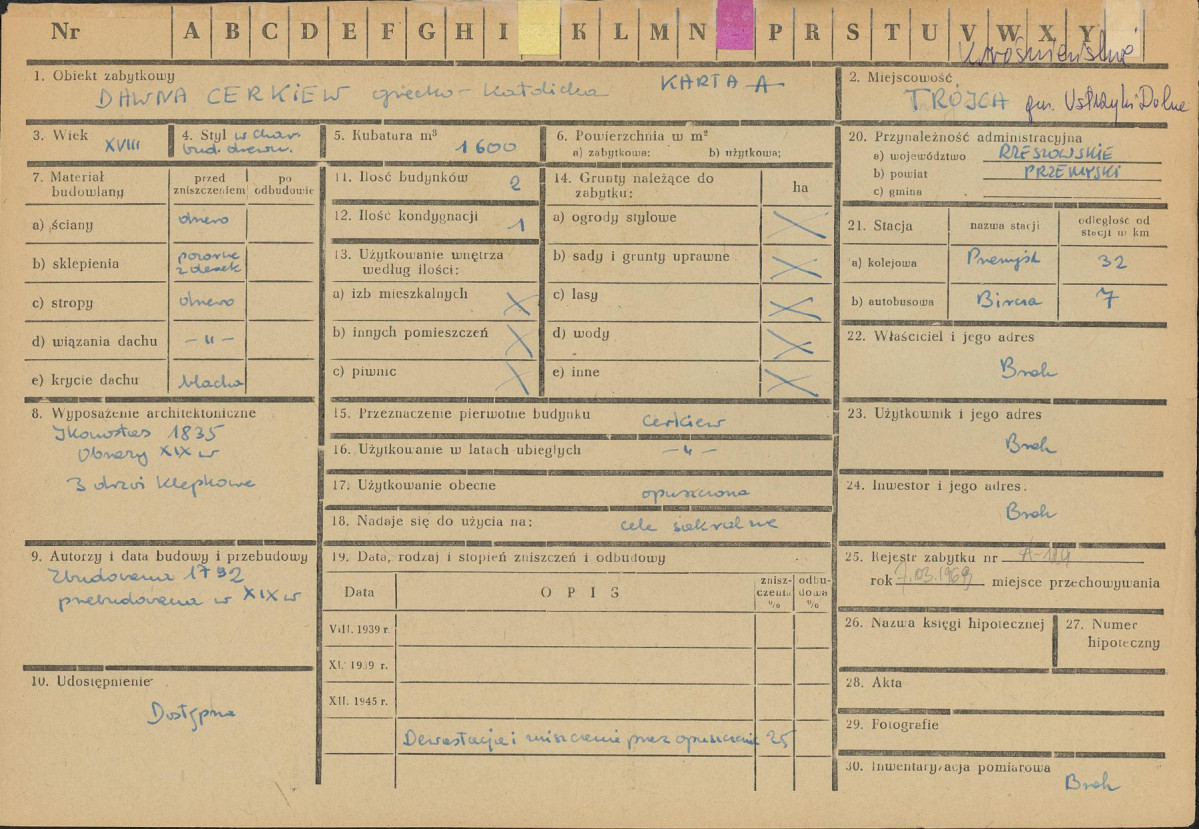 Nr A B C D E F G H I K L M N P R S T U V W X Y
Krośnieńskie
1. Obiekt zabytkowy
DAWNA CERKIEW grecko-katolicka KARTA A
2. Miejscowość
TRÓJCA gm. Ustrzyki Dolne
3. Wiek
XVIII
4. Styl w char.
bud. drewn.
5. Kubatura m³
1600
6. Powierzchnia w m²
a) zabytkowa: b) użytkowa:
7. Materiał budowlany
przed zniszczeniem
po odbudowie
a) ściany drewno
b) sklepienia pozorne
z desek
c) stropy drewno
d) wiązania dachu -"-
e) krycie dachu blacha
8. Wyposażenie architektoniczne
Ikonostas 1835
Obrazy XIX w
3 drzwi klepkowe
9. Autorzy i data budowy i przebudowy
Zbudowana 1792
przebudowana w XIX w
10. Udostępnienie
Dostępna
11. Ilość budynków 2
12. Ilość kondygnacji 1
13. Użytkowanie wnętrza
według ilości:
a) izb mieszkalnych
b) innych pomieszczeń
c) piwnic
14. Grunty należące do
zabytku:
ha
a) ogrody stylowe
b) sady i grunty uprawne
c) lasy
d) wody
e) inne
15. Przeznaczenie pierwotne budynku cerkiew
16. Użytkowanie w latach ubiegłych -"-
17. Użytkowanie obecne opuszczona
18. Nadaje się do użycia na: cele sakralne
19. Data, rodzaj i stopień zniszczeń i odbudowy
Data
OPIS
znisz-
czenia
%
odbu-
dowa
%
VIII. 1939 r.
XI. 1939 r.
XII. 1945 r.
Dewastacja i niszczenie przez opuszczenie 25
20. Przynależność administracyjna
a) województwo RZESZOWSKIE
b) powiat PRZEMYSKI
c) gmina
21. Stacja
nazwa stacji
odległość od
stacji w km
a) kolejowa Przemyśl 32
b) autobusowa Bircza 7
22. Właściciel i jego adres
Brak
23. Użytkownik i jego adres
Brak
24. Inwestor i jego adres.
Brak
25. Rejestr zabytku nr
rok 7.03.1969 miejsce przechowywania
26. Nazwa księgi hipotecznej
27. Numer
hipoteczny
28. Akta
29. Fotografie
30. Inwentaryzacja pomiarowa
Brak